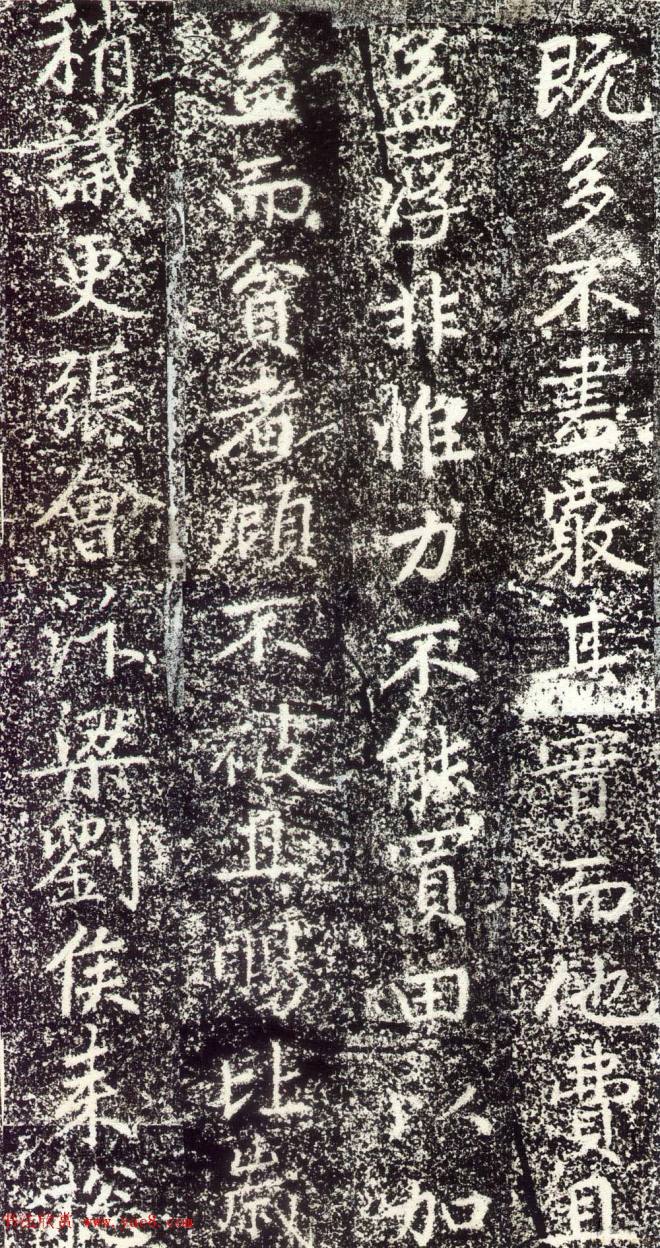 既多不盡覈其實而他費用
益浮非惟力不能買田以加
益而貧者顧不被其賜比歲
稍議更張會汴梁劉侯来
书法欣赏 www.yac8.com